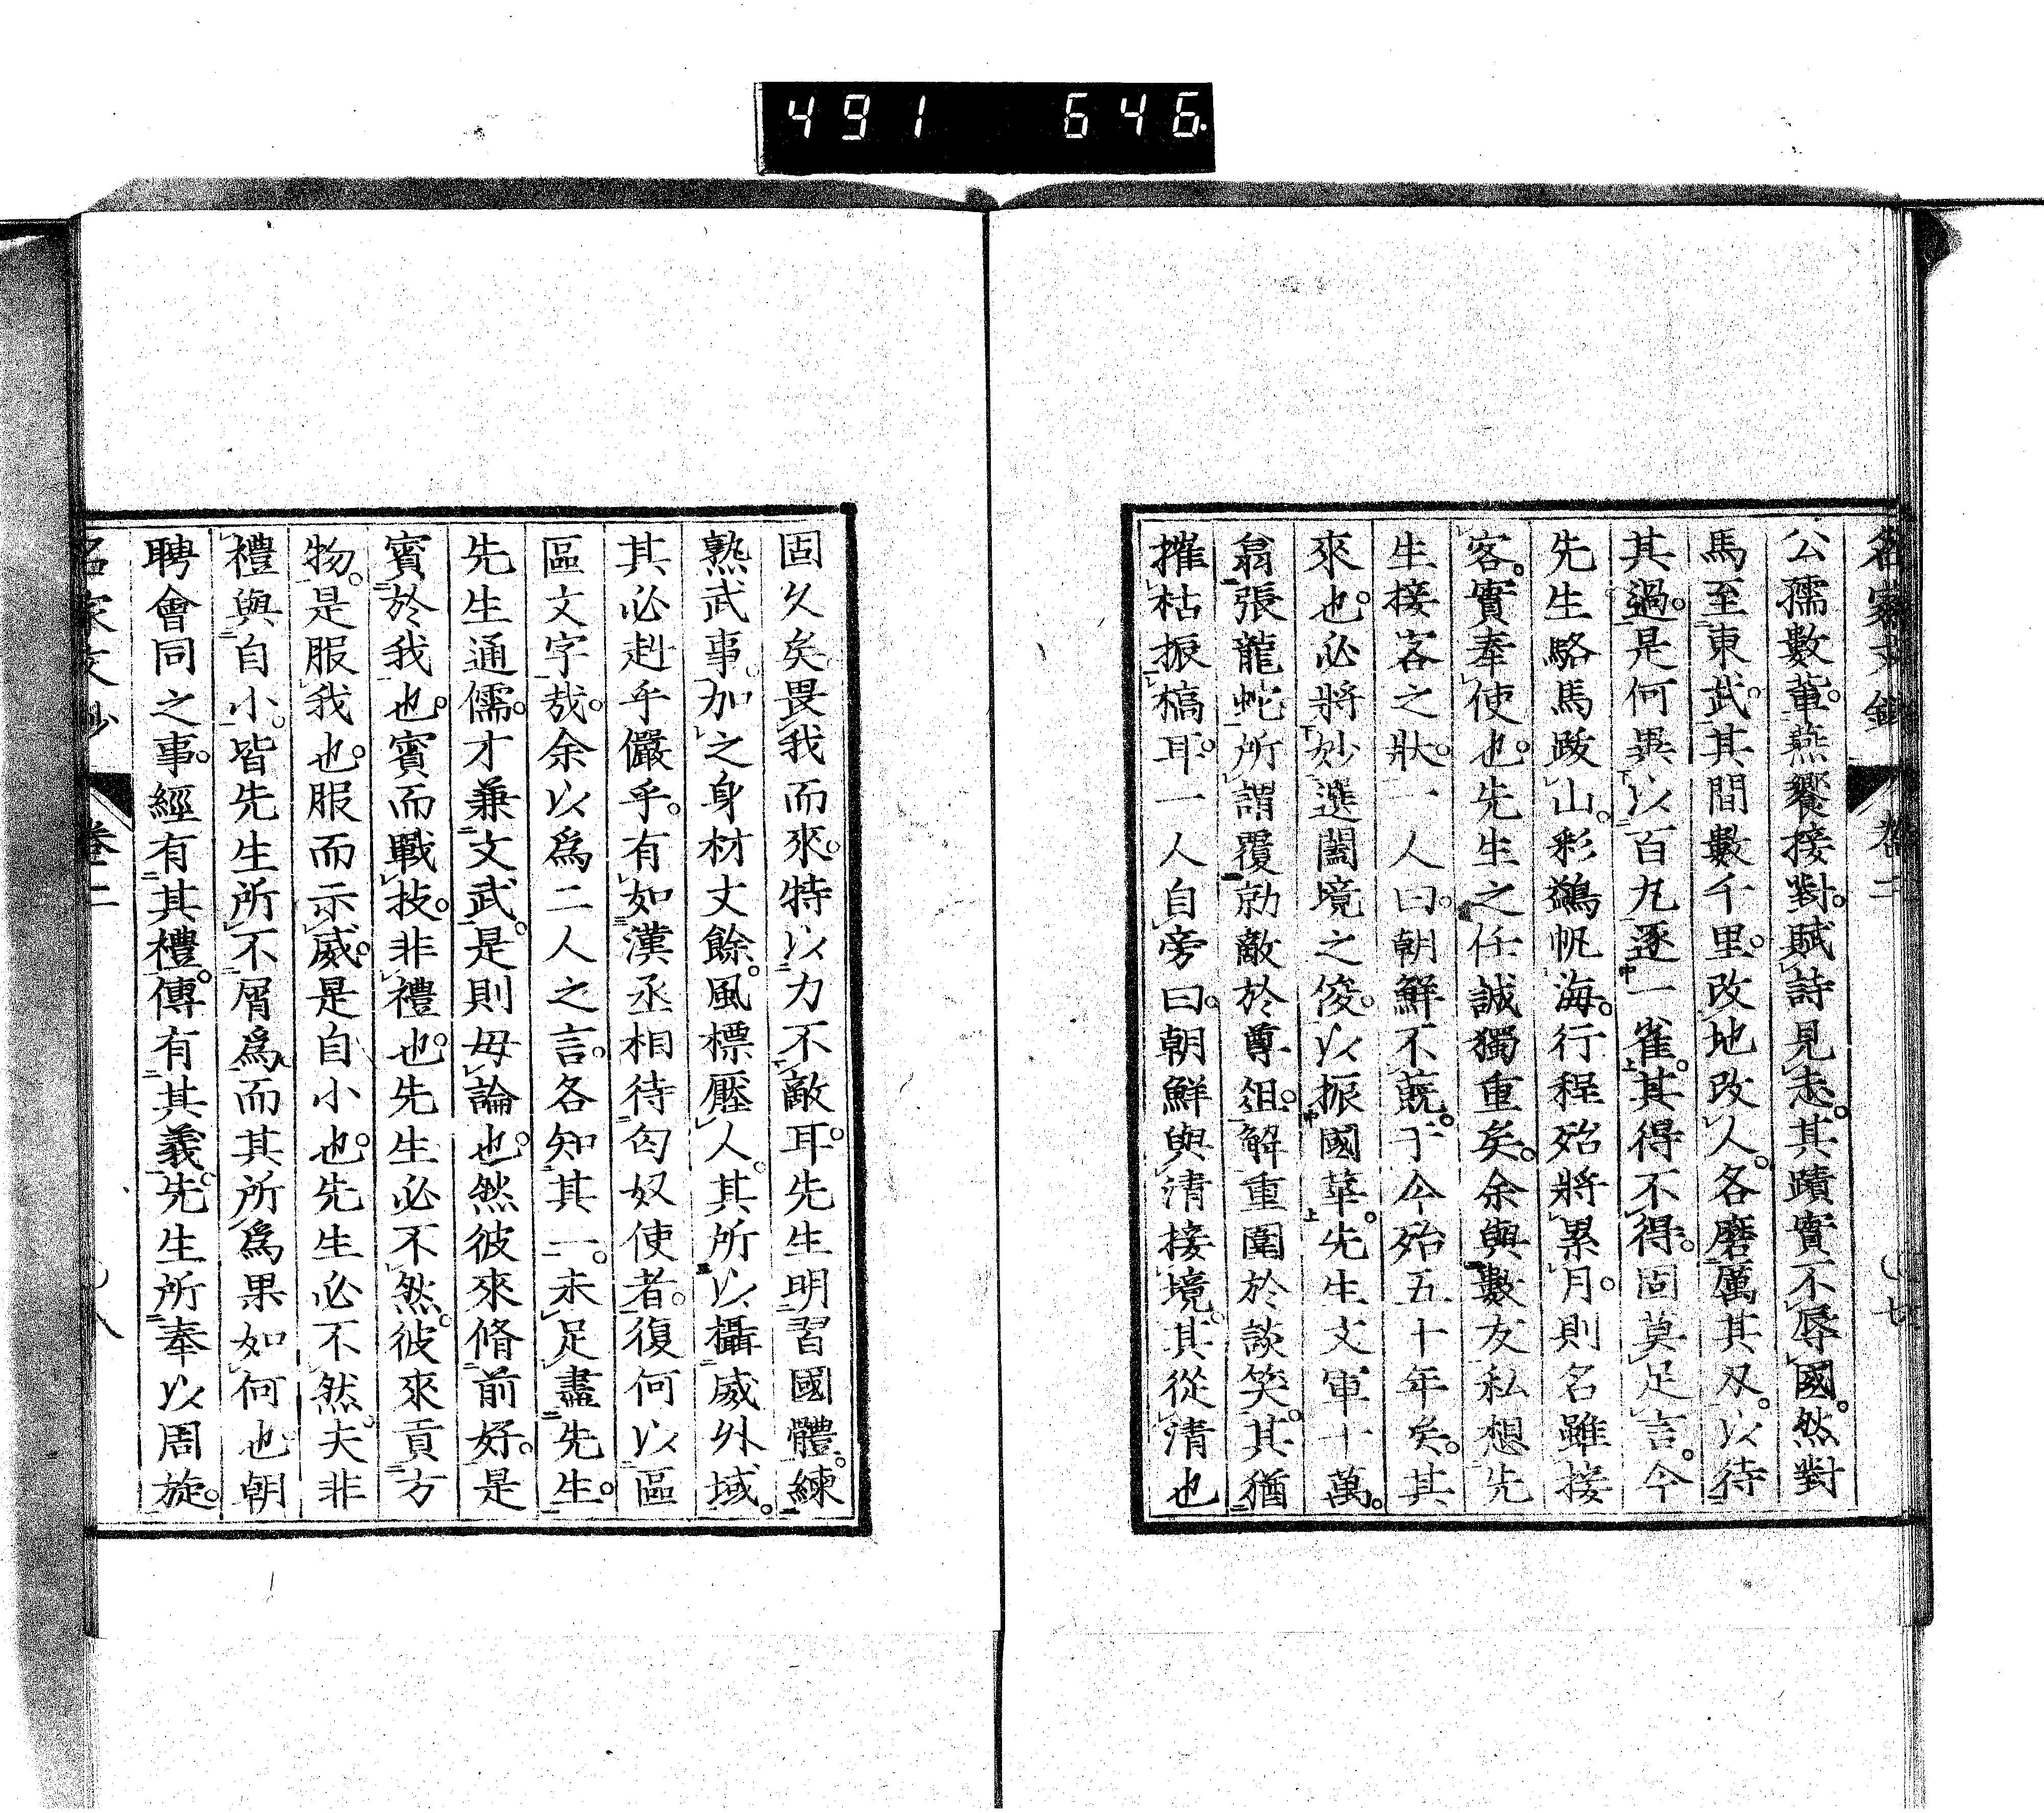 491 646.
名家文鈔 卷二
公孺數輩。燕饗接對。賦詩見志。其蹟實不辱國。然對
馬至東武。其間數千里。改地改人。各磨厲其刄。以待
其過。是何異以百九逐一雀。其得不得。固莫足言。今
先生駱馬跋山。彩鷁帆海。行程殆將累月。則名雖接
客。實奉使也。先生之任誠獨重矣。余與數友私想先
生接客之狀。一人曰。朝鮮不觀。于今殆五十年矣。其
來也。必將妙選闔境之俊。以振國華。先生文軍十萬。
翕張龍蛇。所謂覆勍敵於尊俎。解重圍於談笑。其猶
摧枯振槁耳。一人自旁曰。朝鮮與清接境。其從清也
固久矣。畏我而來。特以力不敵耳。先生明習國體。練
熟武事。加之身材丈餘。風標壓人。其所以攝威外域。
其必赳乎儼乎。有如漢丞相待匈奴使者。復何以區
區文字哉。余以爲二人之言。各知其一。未足盡先生。
先生通儒。才兼文武。是則毋論也。然彼來脩前好。是
賓於我也。賓而戰技。非禮也。先生必不然。彼來貢方
物。是服我也。服而示威。是自小也。先生必不然。夫非
禮與自小。皆先生所不屑爲。而其所爲果如何也。朝
聘會同之事。經有其禮。傳有其義。先生所奉以周旋。
名家文鈔 卷二 八